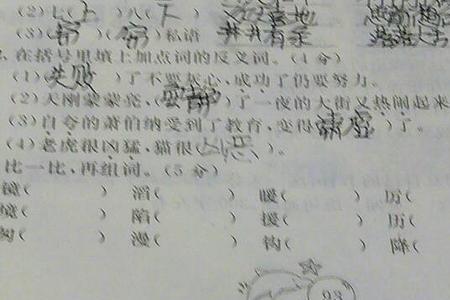 (2)七(上)八(下)
(3)(窃)(窃)私语 井井有条
.在括号里填上加点词的反义词。(4分)
(1)(失败)了不要灰心,成功了仍要努力。
(2)天刚蒙蒙亮,( )了一夜的大街又热闹起来
(3)自夸的萧伯纳受到了教育,变得( )了。
(4)老虎很凶猛,猫很( )。
比一比,再组词。(5分)
镜( ) 滔( ) 暖( ) 厉(
境( ) 陷( ) 援( ) 历(
( ) 漫( ) 钩( ) 降(
93